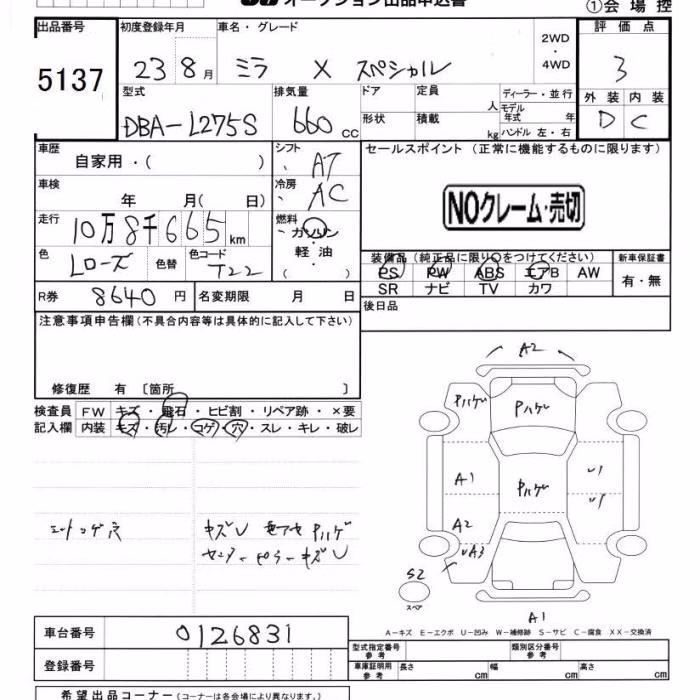 オークション出品申込書
①会場控
出品番号 初度登録年月 車名・グレード 2WD・4WD 評価点
5137 23 8月 ミラ X スペシャル 3
型式 排気量 ドア 定員 人 ディーラー・並行 外装 内装
DBA-L275S 660cc 形状 積載 kg モデル年式 年 ハンドル 左・右 D C
車歴 自家用・( ) シフト AT セールスポイント (正常に機能するものに限ります)
車検 年 月( 日) 冷房 AC NOクレーム・売切
走行 10万8千665km 燃料 ガソリン・軽油・( )
色 Lローズ 色替 色コード T22 装備品(純正品に限り○をつけてください) 新車保証書
PS PW ABS エアB AW 有・無
R券 8640円 名変期限 月 日 SR ナビ TV カワ
注意事項申告欄(不具合内容等は具体的に記入して下さい) 後日品
修復歴 有 〔箇所 〕
検査員 FW キズ・飛石・ヒビ割・リペア跡・×要
記入欄 内装 キズ・汚レ・コゲ・穴・スレ・キレ・破レ
A2
Pハゲ Pハゲ
A1 Pハゲ U1
U1
A2
UA3
シートコゲ穴 キズU Pハゲ
センターピラーキズU
S2
スペア
A1
A-キズ E-エクボ U-凹み W-補修跡 S-サビ C-腐食 XX-交換済
車台番号 0126831 型式指定番号 参考 類別区分番号 参考
登録番号 車庫証明用 参考 長さ cm 幅 cm 高さ cm
希望出品コーナー (コーナーは各会場により異なります。)